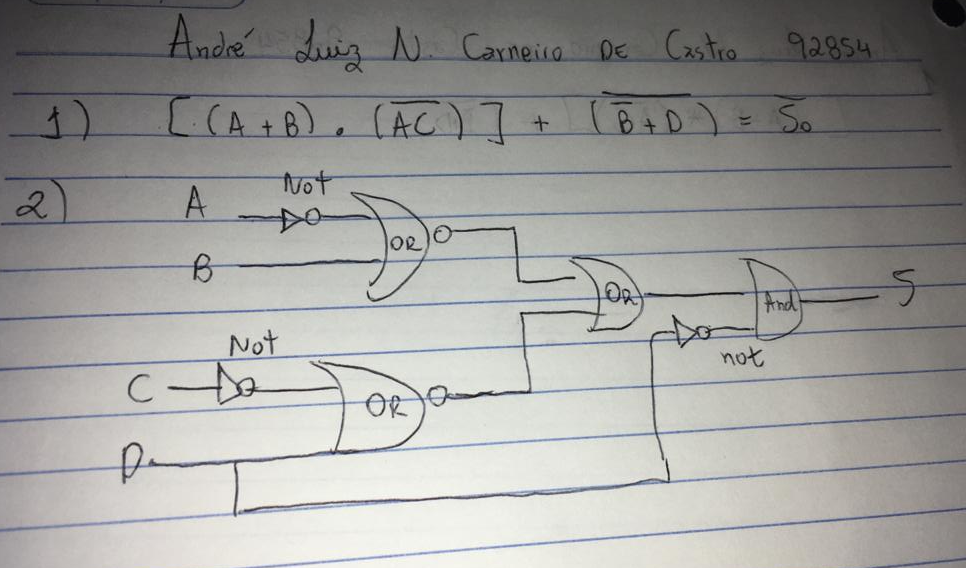 André Luiz N. Carneiro DE Castro 92854
1) [(A + B) . (A̅C̅)] + (B̅ + D)̅ = S̅o
2) A Not OR
B
OR And S
not
C Not OR
D